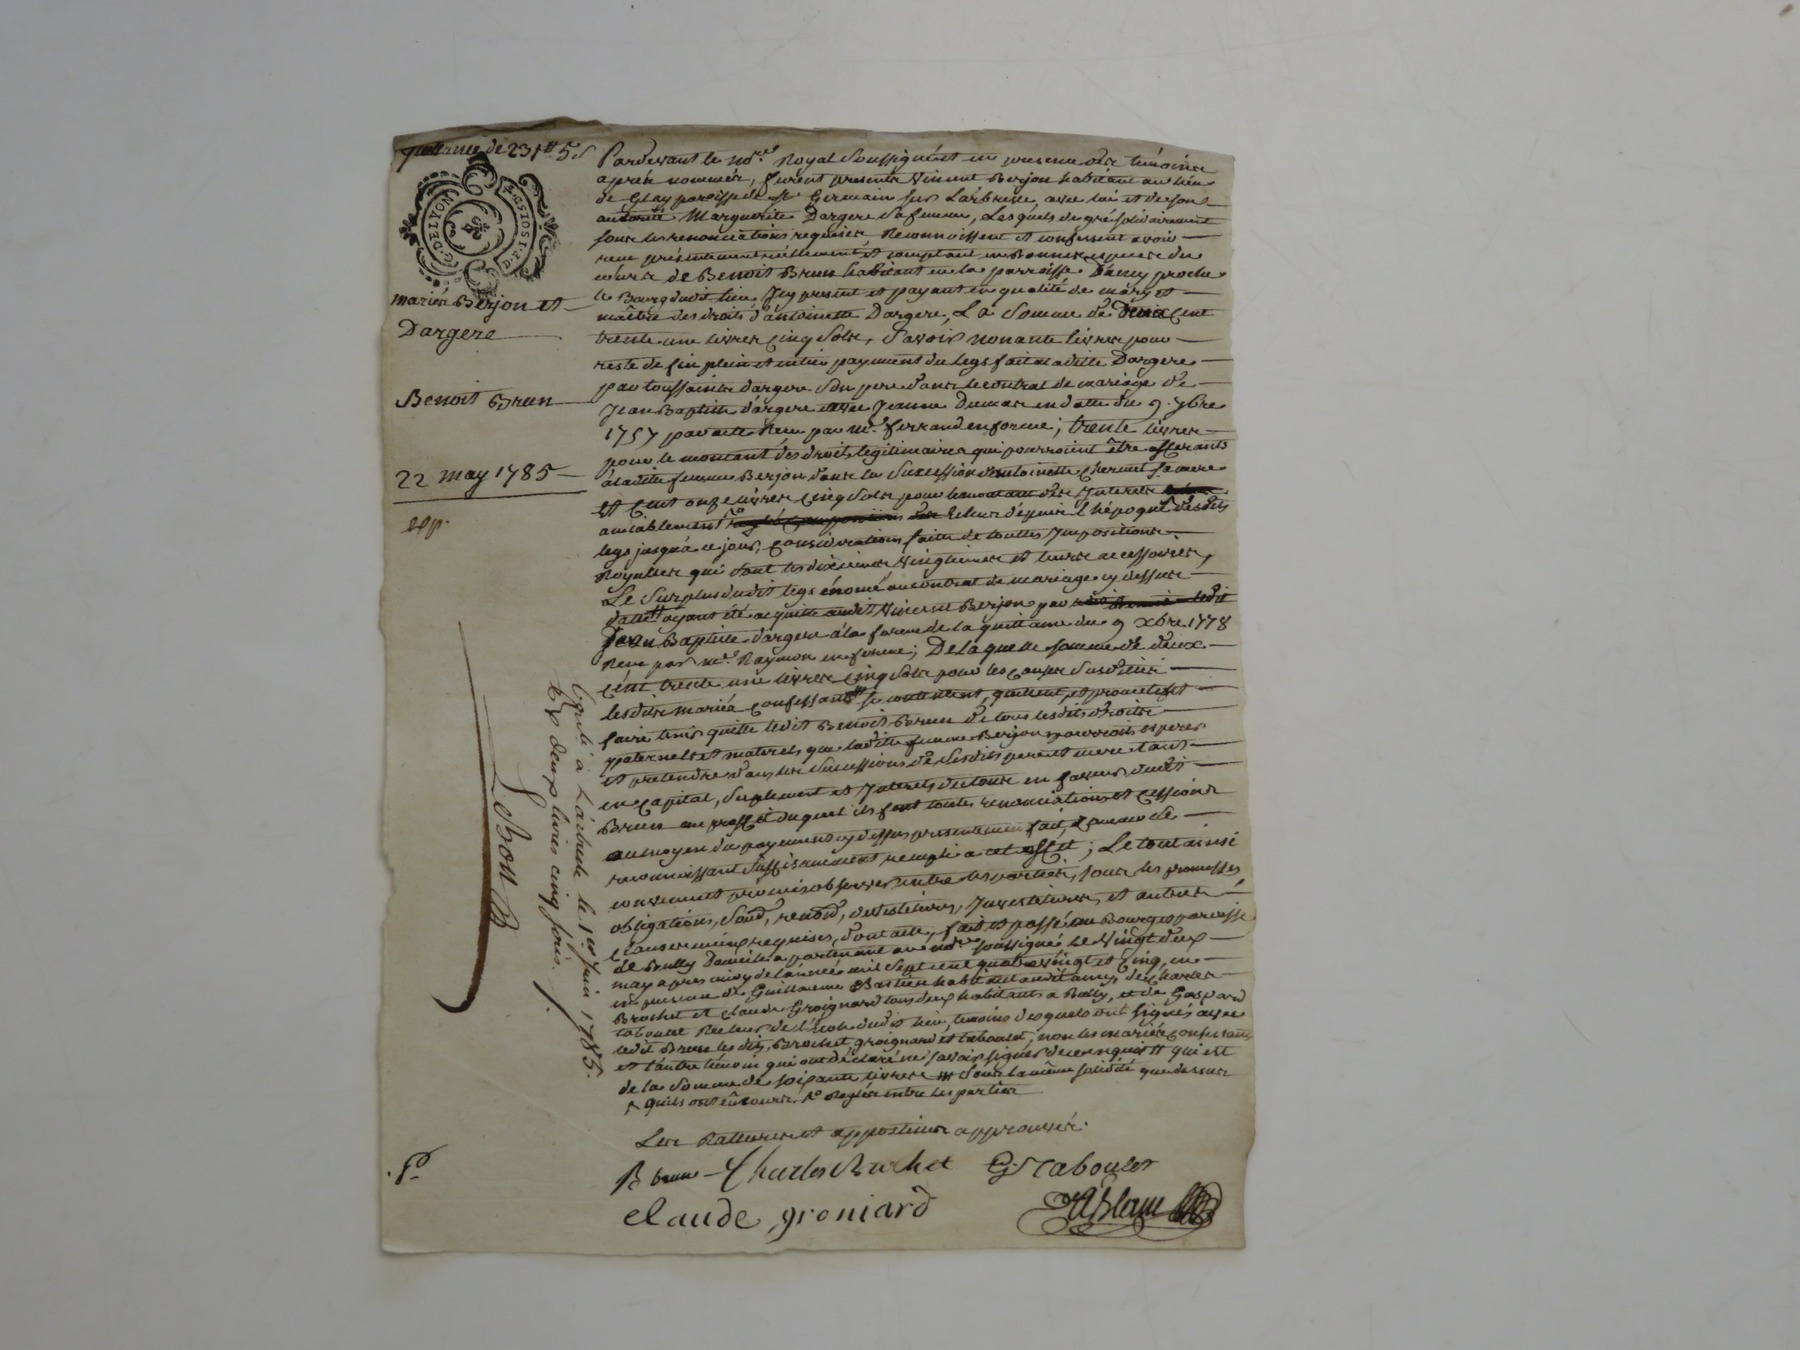 quittance de 231ᵗᵗ 5 s
G. DE LYON
2. SOLS 4. D.
mariés Berjon et
Dargere
Benoit Brun
22 may 1785
exp.
Pardevant le no.re Royal soussigné et en presence des témoins
après nommés, furent presents Vincent Berjon habitant au lieu
de Glay paroisse de st Germain sur Larbresle, avec lui et de son
autorité Marguerite Dargere sa femme, Lesquels de gré solidairement
sous les renonciations requises Reconnoissent et confessent avoir
receu présentement réellement et comptant en Bonnes especes du
cours de Benoit Brun habitant en la parroisse D'ancy proche
le Bourg dudit lieu Icy present et payant en qualité de mary et
maître des droits d'antoinette Dargere, La Somme de deux cent
trente une livres cinq sols, Savoir nonante livres pour
reste de fin plein et entier payement du legs fait a ladite Dargere
par toussaints dargere son pere dans le contrat de mariage de
Jean Baptiste dargere avec Jeanne Dumas en datte du 9. 7bre
1757 par acte Receu par me. ferrand en forme; trente livres
pour le montant des droits legitimaires qui pourroient être afferants
à ladite femme Berjon dans la Succession d'antoinette Chermet sa mere
et Cent onze livres cinq sols pour le montant des Interets
amiablement echus depuis l'hépoque desdits
legs jusqu'à ce jour, considération faite de toutes Impositions
Royalles qui sont les dixiemes vingtiemes et leurs accessoires,
Le Surplus dudit legs énoncé au contrat de mariage cy dessus
datté ayant été acquitté audit Vincent Berjon par
Jean Baptiste dargere à la forme de la quittance du 9 xbre 1778
Receu par me. Raymon en forme; De laquelle somme de deux
cent trente une livres cinq sols pour les causes susdites
lesdits mariés confessants se contentent, quittent, et promettent
faire tenir quitte ledit Benoit Brun de tous lesdits droits
paternels et maternels que ladite femme Berjon pourroit esperer
et pretendre dans les successions de sesdits pere et mere tant
en capital, suplement et Interets du tout en faveur dudit
Brun au proffit duquel ils font toutes renonciations et cessions
au moyen du payement cy dessus presentement fait,
reconnoissant suffisamment rempli a cet effet; Le tout ainsi
convenu et promis observer entre les parties, sous les promesses,
obligations, soud, renond, devestitures, Investitures, et autres
clauses mieux requises, dont acte, fait et passé au Bourg et paroisse
de Bully Domicile apartenant au no.re soussigné le Vingt deux
may apres midy de l'année mil sept cent quatre vingt et cinq, en
en presence de Guillaume Bastien habitant audit ancy, de Charles
Brochet et claude Groignard tous deux habitants a Bully, et de Gaspard
taboulet Recteur de l'école dudit lieu, temoins desquels ont signés avec
ledit Brun lesdits Brochet, groignard et taboulet, non les mariés confessants
et l'autre témoin qui ont déclaré ne savoir signer de ce enquis # qui est
de la somme de soixante livres ## sous la même solidité que dessus
quils ont en cours. Reglés entre les parties
Les Ratures et appostilles approuvés.
B brun Charles Brochet G. Taboulet
claude groniard
Controllé à L'arbresle le 1er Juin 1785.
Rx deux livres cinq sols.